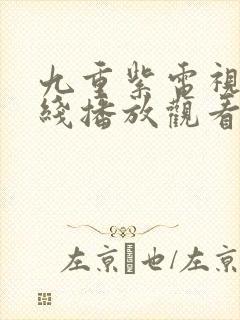 九重紫電視
綫播放觀看
左京 也/左京